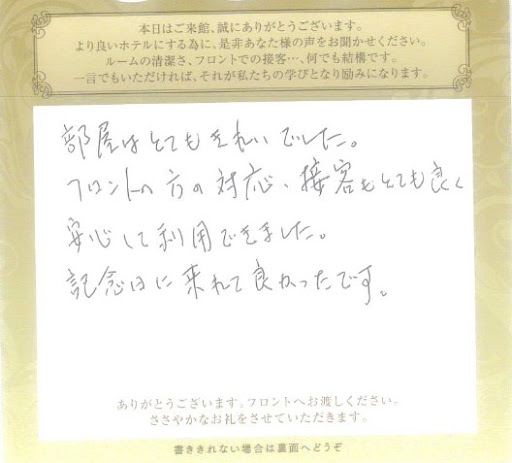 本日はご来館、誠にありがとうございます。
より良いホテルにする為に、是非あなた様の声をお聞かせください。
ルームの清潔さ、フロントでの接客…、何でも結構です。
一言でもいただければ、それが私たちの学びとなり励みになります。
部屋はとてもきれいでした。
フロントの方の対応、接客もとても良く
安心して利用できました。
記念日に来れて良かったです。
ありがとうございます。フロントへお渡しください。
ささやかなお礼をさせていただきます。
書ききれない場合は裏面へどうぞ